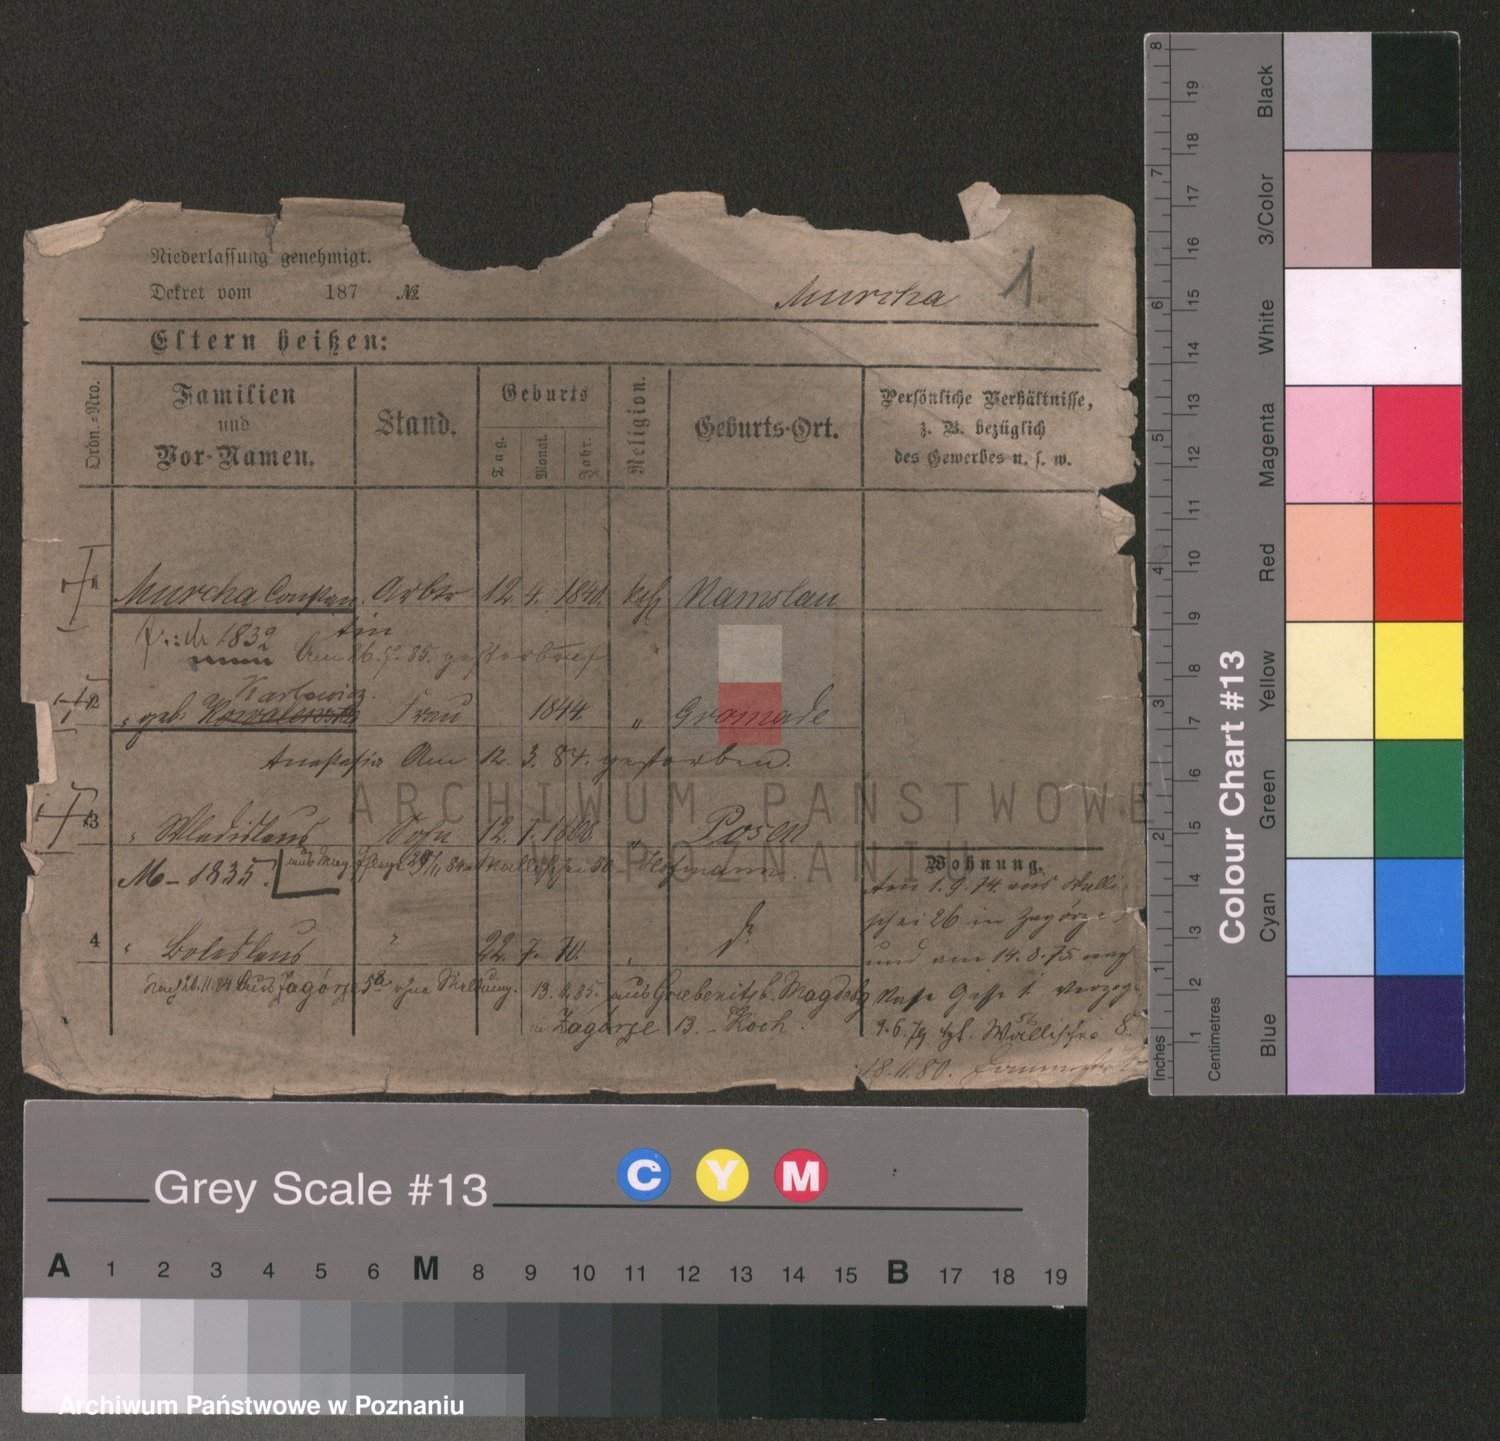 Niederlassung genehmigt.
Dekret vom 187 №
Murcha 1.
Eltern heißen:
Ordn.-Nro.
Familien
und
Vor-Namen.
Stand.
Geburts
Tag.
Monat.
Jahr.
Religion.
Geburts-Ort.
Persönliche Verhältnisse,
z. B. bezüglich
des Gewerbes u. s. w.
1 Murcha Constan Arbtr 12. 4. 1840. kath Namslau
tin
1832
Am 26. 5. 85. gestorben
Karlowicz
2 " geb. Kowalewska Frau 1844 " Gromade
Anastasia Am 12. 3. 84. gestorben.
3 " Wladislaus Sohn 12. 1. 1868 " Posen
M - 1835.
Hofmann.
4 " Boleslaus " 22. 7. 70. "
26.11.84 Aus Zagórze 5a ohne Meldung. 13. 4. 85. aus Griebenitsb. Magdebg
in Zagórze 13. - Koch.
Wohnung.
Am 1. 9. 74. aus Walli
schei 26 in Zagórze
und am 14. 8. 75. nach
9. 6. 79 Wallischei 8.
18. 11. 80.
ARCHIWUM PAŃSTWOWE
W POZNANIU
Colour Chart #13
Black
3/Color
White
Magenta
Red
Yellow
Green
Cyan
Blue
Inches
1 2 3 4 5 6 7 8
Centimetres
1 2 3 4 5 6 7 8 9 10 11 12 13 14 15 16 17 18 19
Grey Scale #13 C Y M
A 1 2 3 4 5 6 M 8 9 10 11 12 13 14 15 B 17 18 19
Archiwum Państwowe w Poznaniu